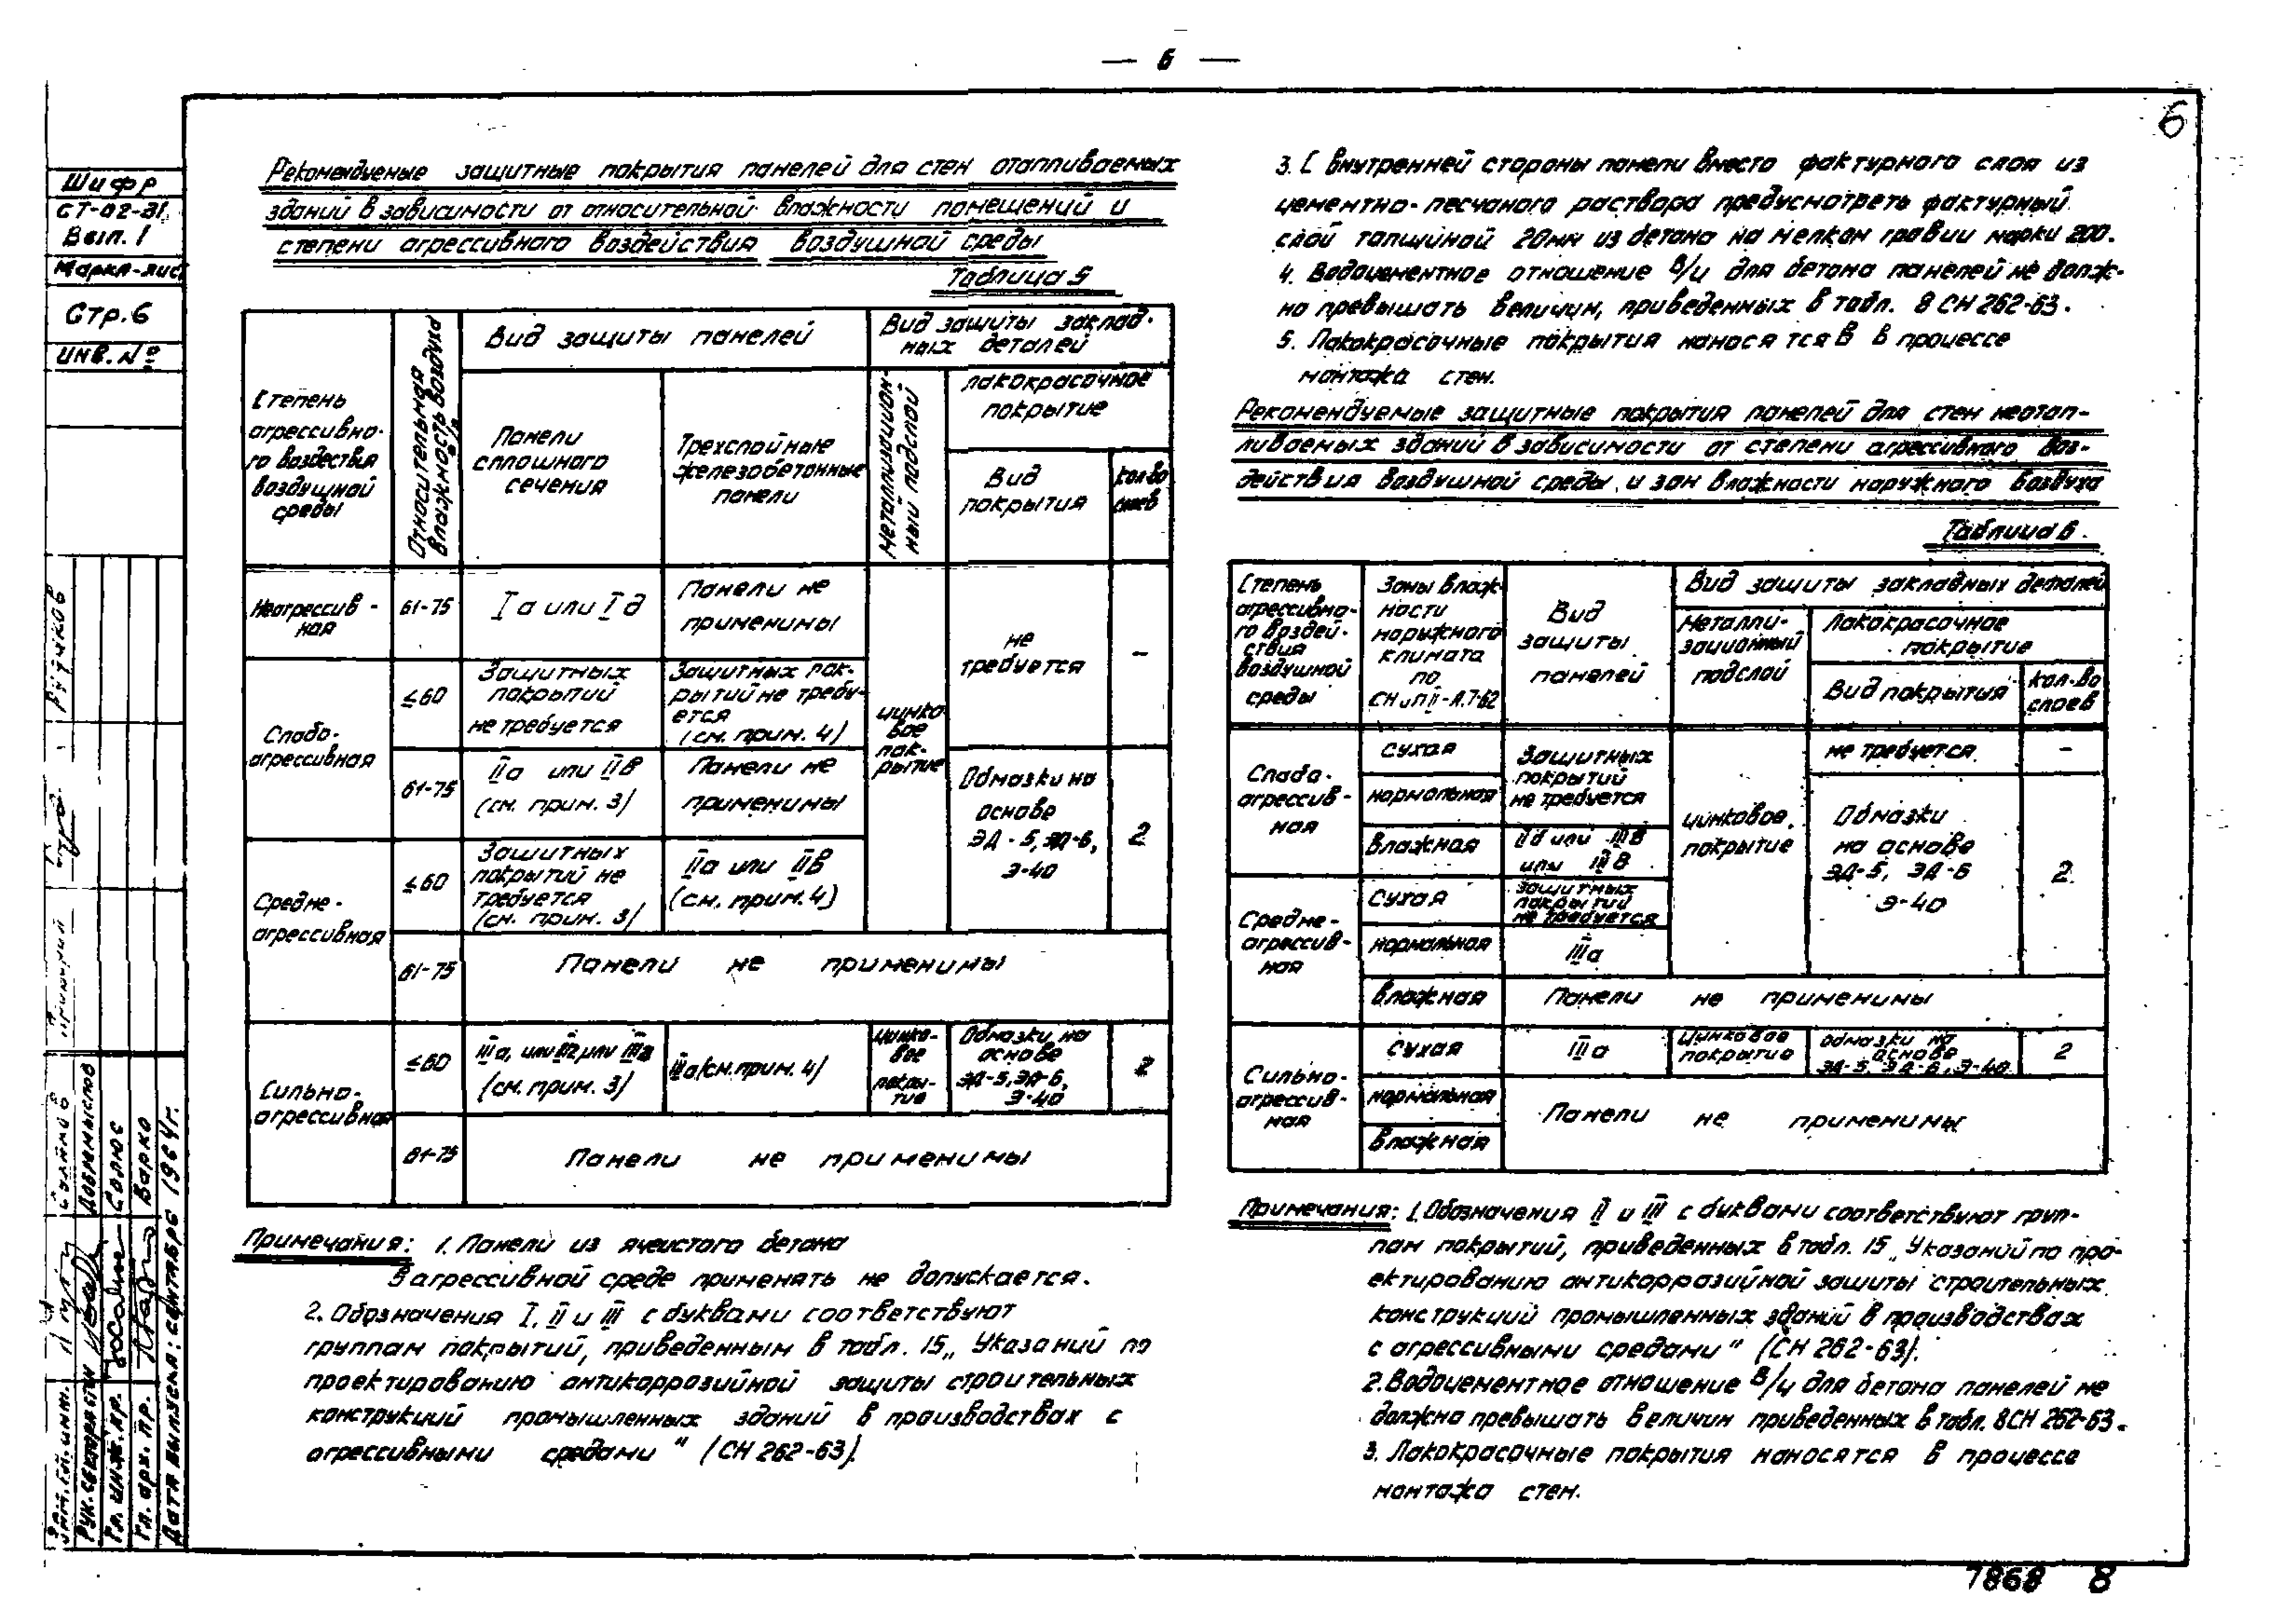 — 6 —
6
Шифр
СТ-02-31
Вып. 1
Марка-лис
Стр.6
ИНВ. №
Рекомендуемые защитные покрытия панелей для стен отапливаемых
зданий в зависимости от относительной влажности помещений и
степени агрессивного воздействия воздушной среды
Таблица 5
Степень
агрессивно-
го воздествия
воздушной
среды
Относительная
влажность воздуха
Вид защиты панелей
Вид защиты заклад-
ных деталей
Панели
сплошного
сечения
Трехслойные
железобетонные
панели
Металлизацион-
ный подслой
лакокрасочное
покрытие
Вид
покрытия
кол-во
слоев
Неагрессив-
ная
61-75
Iа или Iб
Панели не
применимы
не
требуется
–
Слабо-
агрессивная
≤60
Защитных
покрытий
не требуется
Защитных пок-
рытий не требу-
ется
(см. прим. 4)
цинко-
вое
пок-
рытие
61-75
IIа или IIв
(см. прим. 3)
Панели не
применимы
Обмазки на
основе
ЭД-5, ЭД-6,
Э-40
2
Средне-
агрессивная
≤60
Защитных
покрытий не
требуется
(см. прим. 3)
IIа или IIв
(см. прим. 4)
61-75
Панели не применимы
Сильно-
агрессивная
≤60
IIIа, или
(см. прим. 3)
IIIа (см. прим. 4)
Цинко-
вое
покры-
тие
Обмазки на
основе
ЭД-5, ЭД-6,
Э-40
2
61-75
Панели не применимы
Примечания: 1. Панели из ячеистого бетона
в агрессивной среде применять не допускается.
2. Обозначения I, II и III с буквами соответствуют
группам покрытий, приведенным в табл. 15 „Указаний по
проектированию антикоррозийной защиты строительных
конструкций промышленных зданий в производствах с
агрессивными средами" (СН 262-63).
3. С внутренней стороны панели вместо фактурного слоя из
цементно-песчаного раствора предусмотреть фактурный
слой толщиной 20мм из бетона на мелком гравии марки 200.
4. Водоцементное отношение В/Ц для бетона панелей не долж-
но превышать величин, приведенных в табл. 8 СН 262-63.
5. Лакокрасочные покрытия наносятся в в процессе
монтажа стен.
Рекомендуемые защитные покрытия панелей для стен неотап-
ливаемых зданий в зависимости от степени агрессивного воз-
действия воздушной среды и зон влажности наружного воздуха
Таблица 6.
Степень
агрессивно-
го воздей-
ствия
воздушной
среды
Зоны влаж-
ности
наружного
климата
по
СНиП II-А.7-62
Вид
защиты
панелей
Вид защиты закладных деталей
Металли-
зационный
подслой
Лакокрасочное
покрытие
Вид покрытия
кол-во
слоев
Слабо-
агрессив-
ная
сухая
Защитных
покрытий
не требуется
цинковое
покрытие
не требуется.
–
нормальная
Обмазки
на основе
ЭД-5, ЭД-6
Э-40
2
влажная
IIб или IIIв
или
Средне-
агрессив-
ная
сухая
защитных
покрытий
не требуется
нормальная
IIIа
влажная
Панели не применимы
Сильно-
агрессив-
ная
сухая
IIIа
Цинковое
покрытие
Обмазки на
основе
ЭД-5, ЭД-6, Э-40
2
нормальная
влажная
Панели не применимы
Примечания: 1. Обозначения II и III с буквами соответствуют груп-
пам покрытий, приведенных в табл. 15 „Указаний по про-
ектированию антикоррозийной защиты строительных
конструкций промышленных зданий в производствах
с агрессивными средами" (СН 262-63).
2. Водоцементное отношение В/Ц для бетона панелей не
должна превышать величин приведенных в табл. 8 СН 262-63.
3. Лакокрасочные покрытия наносятся в процессе
монтажа стен.
Рук. сектора стен
Добромыслов
Гл. инж. пр.
Солюс
Гл. арх. пр.
Варко
Дата выпуска: сентябрь 1964г.
7868 8